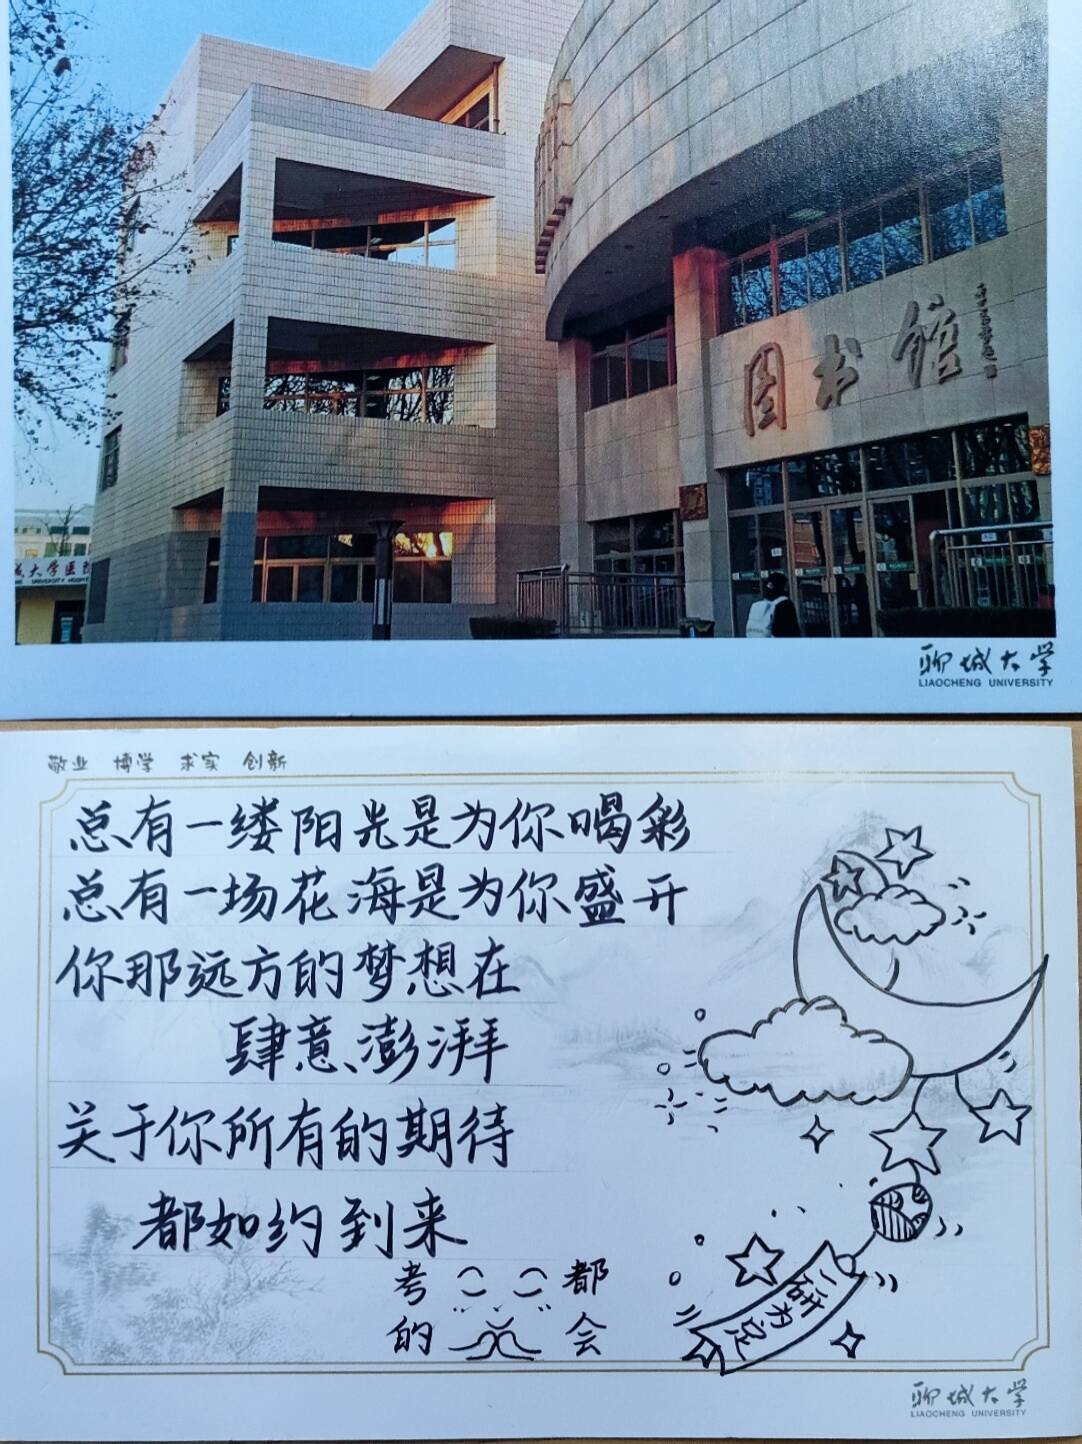 图书馆
城大学医院
UNIVERSITY HOSPI
聊城大学
LIAOCHENG UNIVERSITY
敬业 博学 求实 创新
总有一缕阳光是为你喝彩
总有一场花海是为你盛开
你那远方的梦想在
肆意澎湃
关于你所有的期待
都如约到来
考 都
的 会
一研为定
聊城大学
LIAOCHENG UNIVERSITY